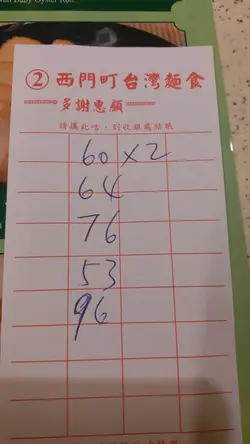 with Baby Oyster Roll
② 西門町台灣麵食
多謝惠顧
請攜此咭，到收銀處結賬
60 x 2
64
76
53
96